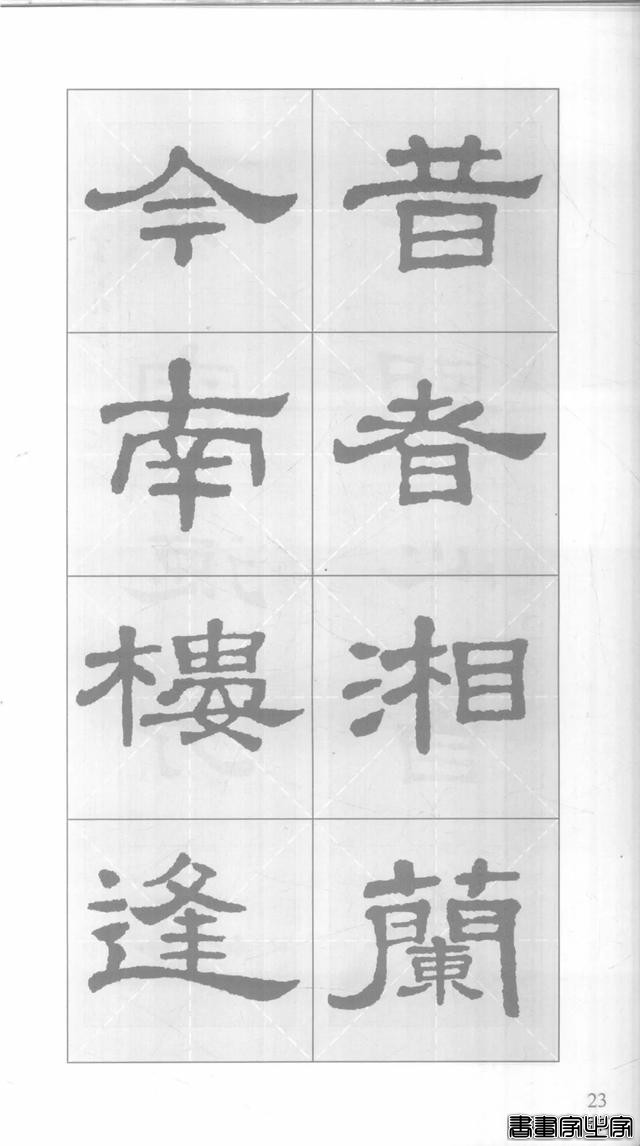 昔者湘蘭
今南樓逢
23
書畫字中字